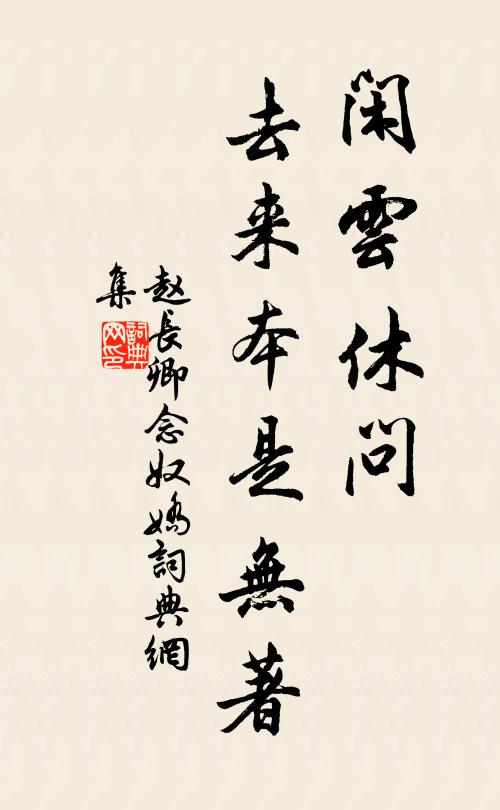 閑雲休问
去来本是無著
赵長卿念奴嬌詞典網
集
詞典
网印